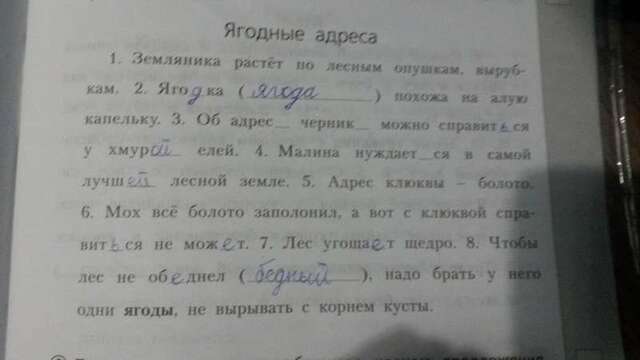 Ягодные адреса
1. Земляника растёт по лесным опушкам, выруб-
кам. 2. Ягодка (ягода) похожа на алую
капельку. 3. Об адрес_ черник_ можно справиться
у хмурой елей. 4. Малина нуждает_ся в самой
лучшей лесной земле. 5. Адрес клюквы – болото.
6. Мох всё болото заполонил, а вот с клюквой спра-
виться не может. 7. Лес угощает щедро. 8. Чтобы
лес не обеднел (бедный), надо брать у него
одни ягоды, не вырывать с корнем кусты.